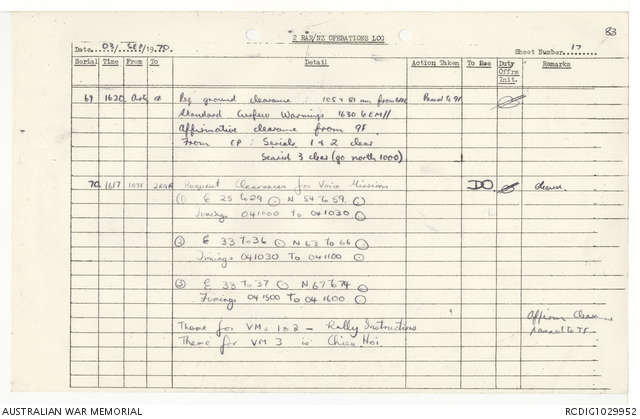 83
2 RAR/NZ OPERATIONS LOG
Date 03/SEP/1970. Sheet Number 17
Serial Time From To Detail Action Taken To See Duty Offrs Init. Remarks
69 1620 Arty Req ground clearance : 105 + 81 mm from
Standard Airfew Warnings 1630
Affirmative clearance from 9F.
From CP : Serials 1 & 2 clear
Search 3 clear (go north 1000)
70 1617 2RAR Request Clearances for Voice Missions DO
(1) E 25 to 29 N 54 to 59
Timings 041000 to 041030
(2) E 33 to 36 N 63 to 66
Timings 041030 to 041100
(3) E 33 to 37 N 67 to 74
Timings 041500 to 041600
Theme for VMs 1 & 2 - Rally Instructions
Theme for VM 3 is Chieu Hoi.
Affirm Clearance
passed to TF
AUSTRALIAN WAR MEMORIAL RCDIG1029952